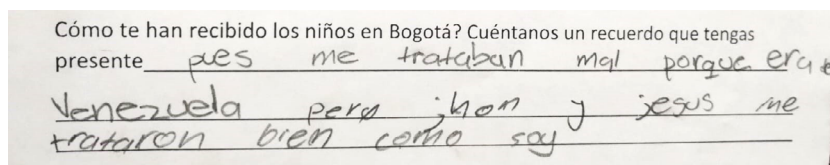 Cómo te han recibido los niños en Bogotá? Cuéntanos un recuerdo que tengas
presente pues me trataban mal porque era
Venezuela pero jhon y jesus me
trataron bien como soy